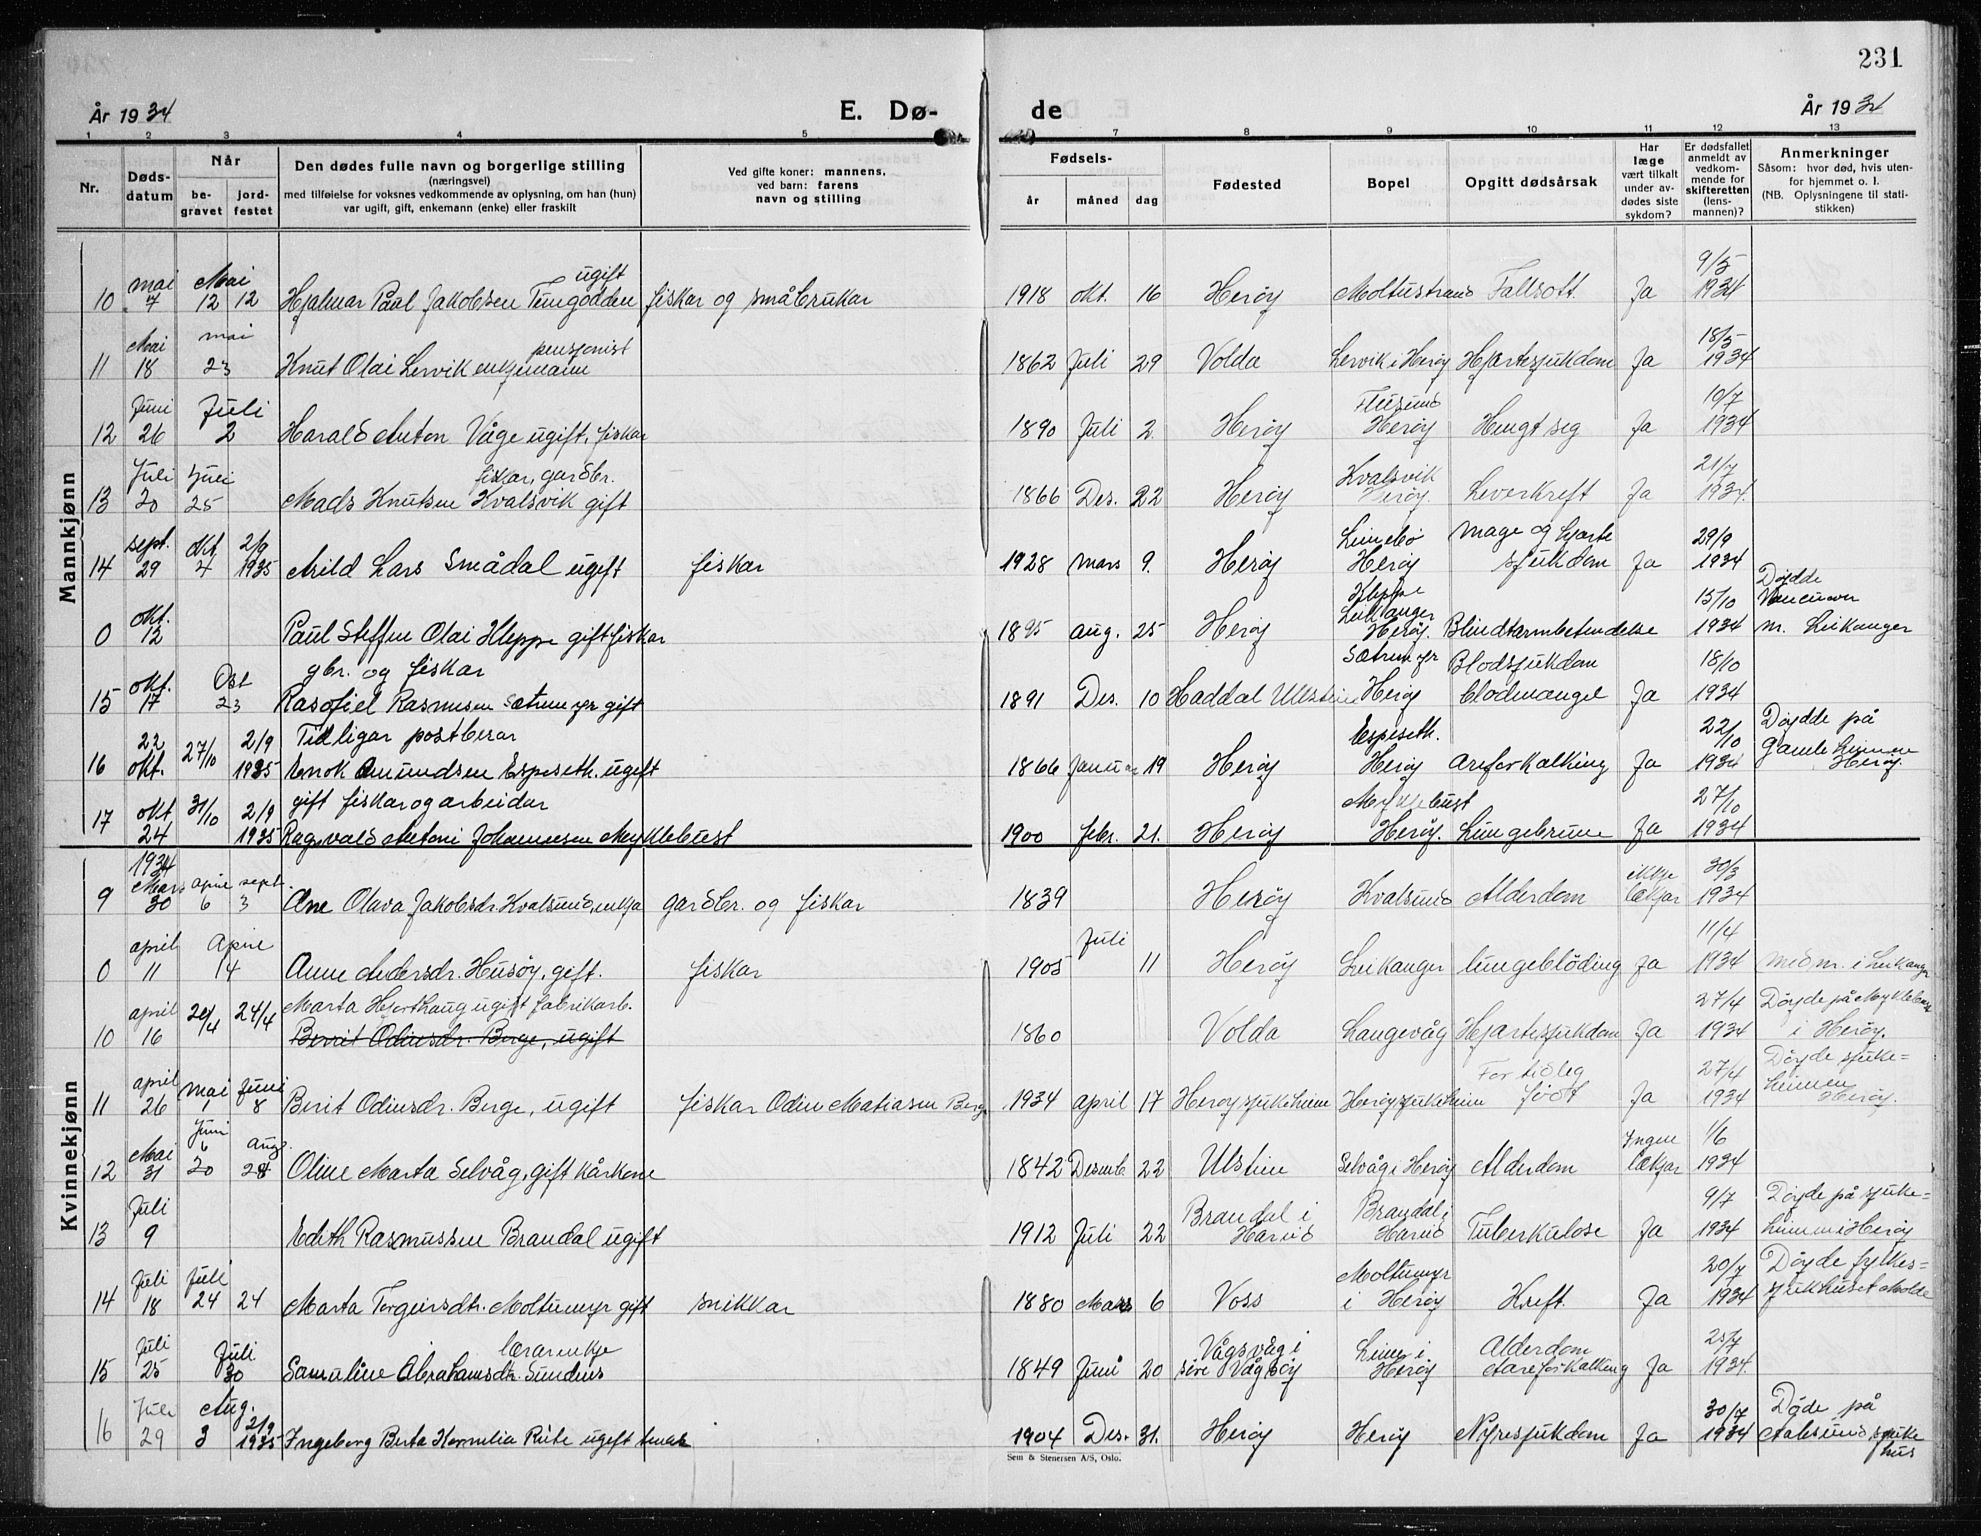 231
År 1934 E. Dø- de År 1934
1 2 3 4 5 7 8 9 10 11 12 13
Nr. Dødsdatum Når begravet jordfestet
Den dødes fulle navn og borgerlige stilling
(næringsvei)
med tilføielse for voksnes vedkommende av oplysning, om han (hun)
var ugift, gift, enkemann (enke) eller fraskilt
Ved gifte koner: mannens,
ved barn: farens
navn og stilling
Fødsels- år måned dag
Fødested Bopel Opgitt dødsårsak
Har læge vært tilkalt under avdødes siste sykdom?
Er dødsfallet anmeldt av vedkommende for skifteretten (lensmannen)?
Anmerkninger
Såsom: hvor død, hvis utenfor hjemmet o. l.
(NB. Oplysningene til statistikken)
Mannkjønn
10 mai 7 Mai 12 12 Hjalmar Paul Jakobsen ugift fiskar og småbrukar 1918 okt. 16 Herøy Moltustrand Fallsott. Ja 9/5 1934
11 Mai 18 mai 23 Knut Olai Lervik enkjemann pensjonist 1862 Juli 29 Volda Lervik i Herøy Hjartesjukdom Ja 18/5 1934
12 Juni 26 Juli 2 Harald Anton Våge ugift, fiskar 1890 Juli 2 Herøy Herøy Hengt seg Ja 10/7 1934
13 Juli 20 Juli 25 Mads Knutsen Kvalsvik gift fiskar, gardbr. 1866 Des. 22 Herøy Kvalsvik Herøy. Leverkreft Ja 21/7 1934.
14 sept. 29 okt 4 2/9 1935 Arild Lars Smådal ugift fiskar 1928 mars 9. Herøy Leinebø Herøy Mage og hjarte sjukdom Ja 29/9 1934
0 okt. 12 Paul Steffen Olai Kleppe gift fiskar 1895 aug. 25 Herøy Kleppe Leikanger Herøy. Blindtarmbetendelse 15/10 1934 Døydde Vancuver m. Leikanger
15 okt. 17 Okt 23 gbr. og fiskar Rasmusen Sætremyr gift 1891 Des. 10 Haddal Ulstein Sætremyr Herøy Blodsjukdom blodmangel Ja 18/10 1934
16 22 okt. 27/10 2/9 1935 Tidligar postberar Enok Amundsen Espeseth. ugift 1866 Januar 19 Herøy Espeseth. Herøy Areforkalking Ja 22/10 1934 Døydde på Gamleheimen Herøy.
17 okt 24 31/10 2/9 1935 gift fiskar og arbeidar Ragnvald Antoni Johannesen Myklebust 1900 febr. 21. Herøy Myklebust Herøy. Lungebrune Ja 27/10 1934
Kvinnekjønn
9 1934 Mars 30 april 6 sept. 3 Ane Olava Jakobsdr. Kvalsund, enkja gardbr. og fiskar 1839 Herøy Kvalsund Alderdom ikkje lækjar 30/3 1934
0 april 11 April 14 Anne Andersdr. Husøy, gift. fiskar 1905 Juli 11 Herøy Leikanger lungeblöding Ja 11/4 1934 medm. i Leikanger
10 april 16 24/4 Marta Hjorthaug ugift fabrikarb. Berit Odinsdr. Berge, ugift 1860 Volda Langevåg Hjartesjukdom Ja 27/4 1934 Døyde på Myklebust i Herøy.
11 april 26 mai 1 Juni 8 Berit Odinsdr. Berge, ugift fiskar Odin Matiasen Berge 1934 april 17 Herøy sjukeheim Herøy sjukeheim For tidleg født Ja 27/4 1934 Døyde sjukeheimen Herøy.
12 Mai 31 Juni 6 20 aug. Oline Marta Selvåg, gift kårkone 1842 Desemb 22 Ulstein Selvåg i Herøy Alderdom Ingen lækjar 1/6 1934
13 Juli 9 Edith Rasmussen Brandal ugift 1912 Juli 22 Brandal i Harøid Brandal i Harøid Tuberkulose Ja 9/7 1934 Døyde på sjukeheimen i Herøy
14 Juli 18 Juli 24 24 Marta Torgeirsdtr. Moltumyr gift snikkar 1880 Mars 6 Voss Moltumyr i Herøy Kreft. Ja 20/7 1934 Døyde fylkessjukhuset Molde
15 Juli 25 Juli 30 lærarenkje Samuline Abrahamsdtr. Sundnes 1849 Juni 20 Vågsvåg i søre Vågsøy Leine i Herøy Alderdom Aareforkalking Ja 25/7 1934.
16 Juli 29 Aug. 3 2/9 1935 Ingeborg Berta Kornelia ugift 1904 Des. 31. Herøy Herøy Nyresjukdom Ja 30/7 1934 Døde på Aalesund sjukehus
Sem & Stenersen A/S, Oslo.